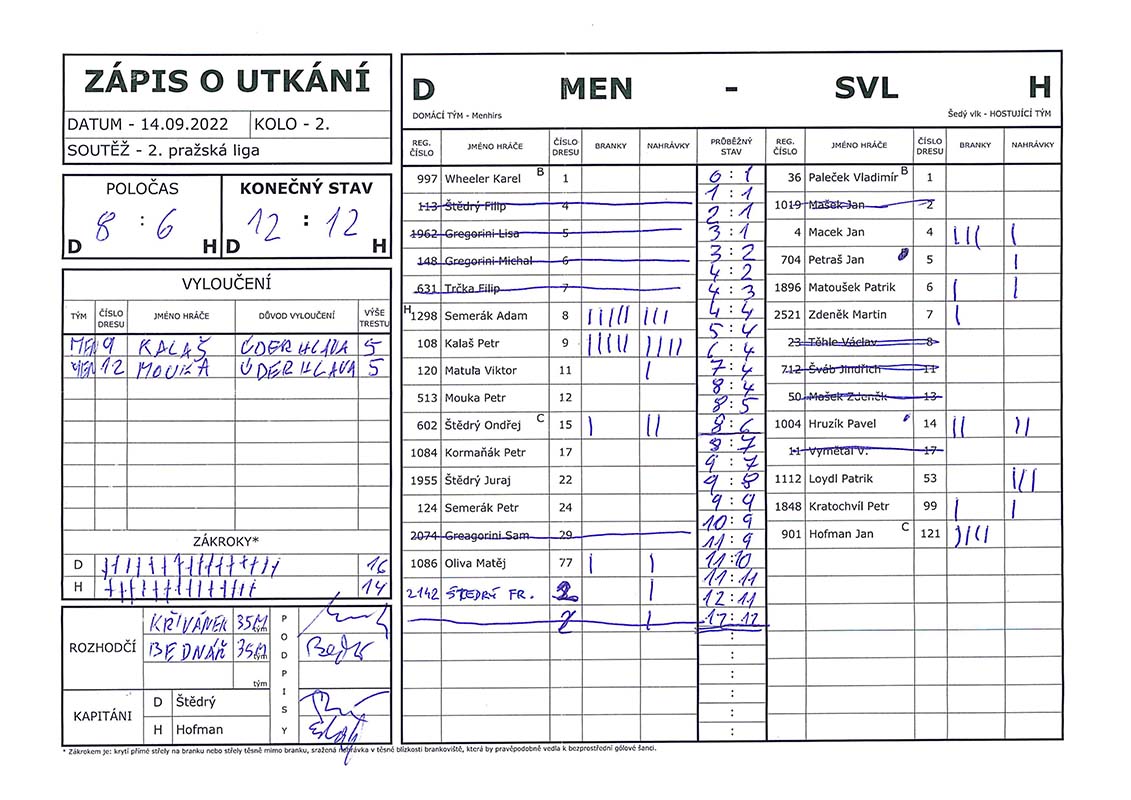 ZÁPIS O UTKÁNÍ
DATUM - 14.09.2022 KOLO - 2.
SOUTĚŽ - 2. pražská liga
POLOČAS KONEČNÝ STAV
8 : 6 12 : 12
D H D H
VYLOUČENÍ
TÝM ČÍSLO DRESU JMÉNO HRÁČE DŮVOD VYLOUČENÍ VÝŠE TRESTU
MEN 9 KALAŠ ÚDER HLAVA 5
MEN 12 MOUKA ÚDER HLAVA 5
ZÁKROKY*
D 16
H 14
ROZHODČÍ
KŘIVÁNEK 35M tým
BEDNÁŘ 35M tým
tým
PODPISY
KAPITÁNI
D Štědrý
H Hofman
D MEN - SVL H
DOMÁCÍ TÝM - Menhirs Šedý vlk - HOSTUJÍCÍ TÝM
REG. ČÍSLO JMÉNO HRÁČE ČÍSLO DRESU BRANKY NAHRÁVKY PRŮBĚŽNÝ STAV REG. ČÍSLO JMÉNO HRÁČE ČÍSLO DRESU BRANKY NAHRÁVKY
997 Wheeler Karel B 1
113 Štědrý Filip 4
1962 Gregorini Lisa 5
148 Gregorini Michal 6
631 Trčka Filip 7
H 1298 Semerák Adam 8 IIIII III
108 Kalaš Petr 9 IIIII IIII
120 Matula Viktor 11 I
513 Mouka Petr 12
602 Štědrý Ondřej C 15 I II
1084 Kormaňák Petr 17
1955 Štědrý Juraj 22
124 Semerák Petr 24
2074 Greagorini Sam 29
1086 Oliva Matěj 77 I I
2142 ŠTEDRÝ FR. 2 I
2 I
0 : 1
1 : 1
2 : 1
3 : 1
3 : 2
4 : 2
4 : 3
4 : 4
5 : 4
6 : 4
7 : 4
8 : 4
8 : 5
8 : 6
8 : 7
9 : 7
9 : 8
9 : 9
10 : 9
11 : 9
11 : 10
11 : 11
12 : 11
12 : 12
36 Paleček Vladimír B 1
1019 Mašek Jan 2
4 Macek Jan 4 III I
704 Petraš Jan 5 I
1896 Matoušek Patrik 6 I I
2521 Zdeněk Martin 7 I
23 Těhle Václav 8
712 Šváb Jindřich 11
50 Mašek Zdeněk 13
1004 Hruzík Pavel 14 II II
11 Vymětal V. 17
1112 Loydl Patrik 53 III
1848 Kratochvíl Petr 99 I I
901 Hofman Jan C 121 IIII
* Zákrokem je: krytí přímé střely na branku nebo střely těsně mimo branku, sražená nahrávka v těsné blízkosti brankoviště, která by pravěpodobně vedla k bezprostřední gólové šanci.